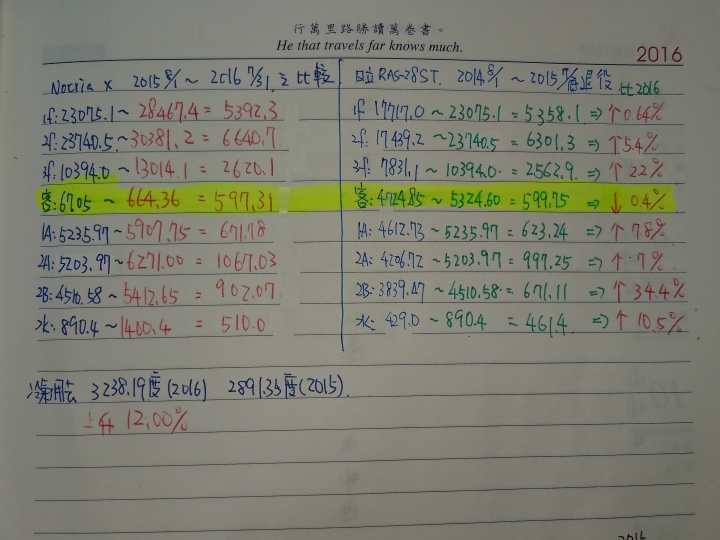 行萬里路勝讀萬卷書。
He that travels far knows much.
2016
Nocria X 2015 8/1 ~ 2016 7/31 之比較
1f: 23075.1 ~ 28467.4 = 5392.3
2f: 23740.5 ~ 30381.2 = 6640.7
3f: 10394.0 ~ 13014.1 = 2620.1
客: 67.05 ~ 664.36 = 597.31
1A: 5235.97 ~ 5907.75 = 671.78
2A: 5203.97 ~ 6271.00 = 1067.03
2B: 4510.58 ~ 5412.65 = 902.07
水: 890.4 ~ 1400.4 = 510.0
日立 RAS-28ST. 2014 8/1 ~ 2015 7/ 退役 比2016
1f 17717.0 ~ 23075.1 = 5358.1 => ↑ 0.64%
2f: 17439.2 ~ 23740.5 = 6301.3 => ↑ 5.4%
3f: 7831.1 ~ 10394.0 = 2562.9 => ↑ 2.2%
客: 4724.85 ~ 5324.60 = 599.75 => ↓ 0.4%
1A: 4612.73 ~ 5235.97 = 623.24 => ↑ 7.8%
2A: 4206.72 ~ 5203.97 = 997.25 => ↑ 7%
2B: 3839.47 ~ 4510.58 = 671.11 => ↑ 34.4%
水: 429.0 ~ 890.4 = 461.4 => ↑ 10.5%
冷氣用去 3238.19度(2016) 2891.35度(2015).
上升 12.00%